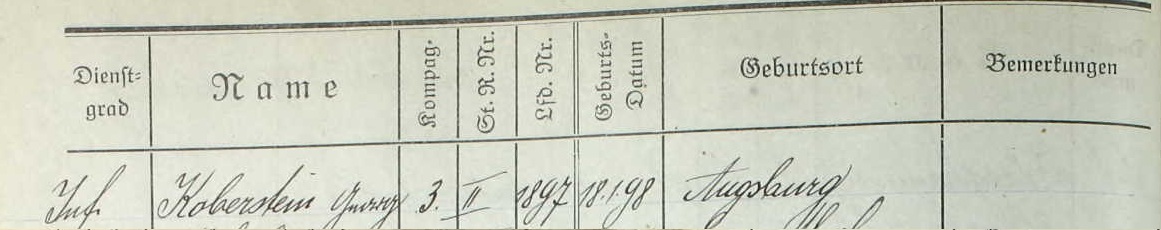 Dienst-
grad
Name
Kompag.
St. R. Nr.
Lfd. Nr.
Geburts-
Datum
Geburtsort
Bemerkungen
Inf. Koberstein Georg 3. II 1897 18.1.98 Augsburg